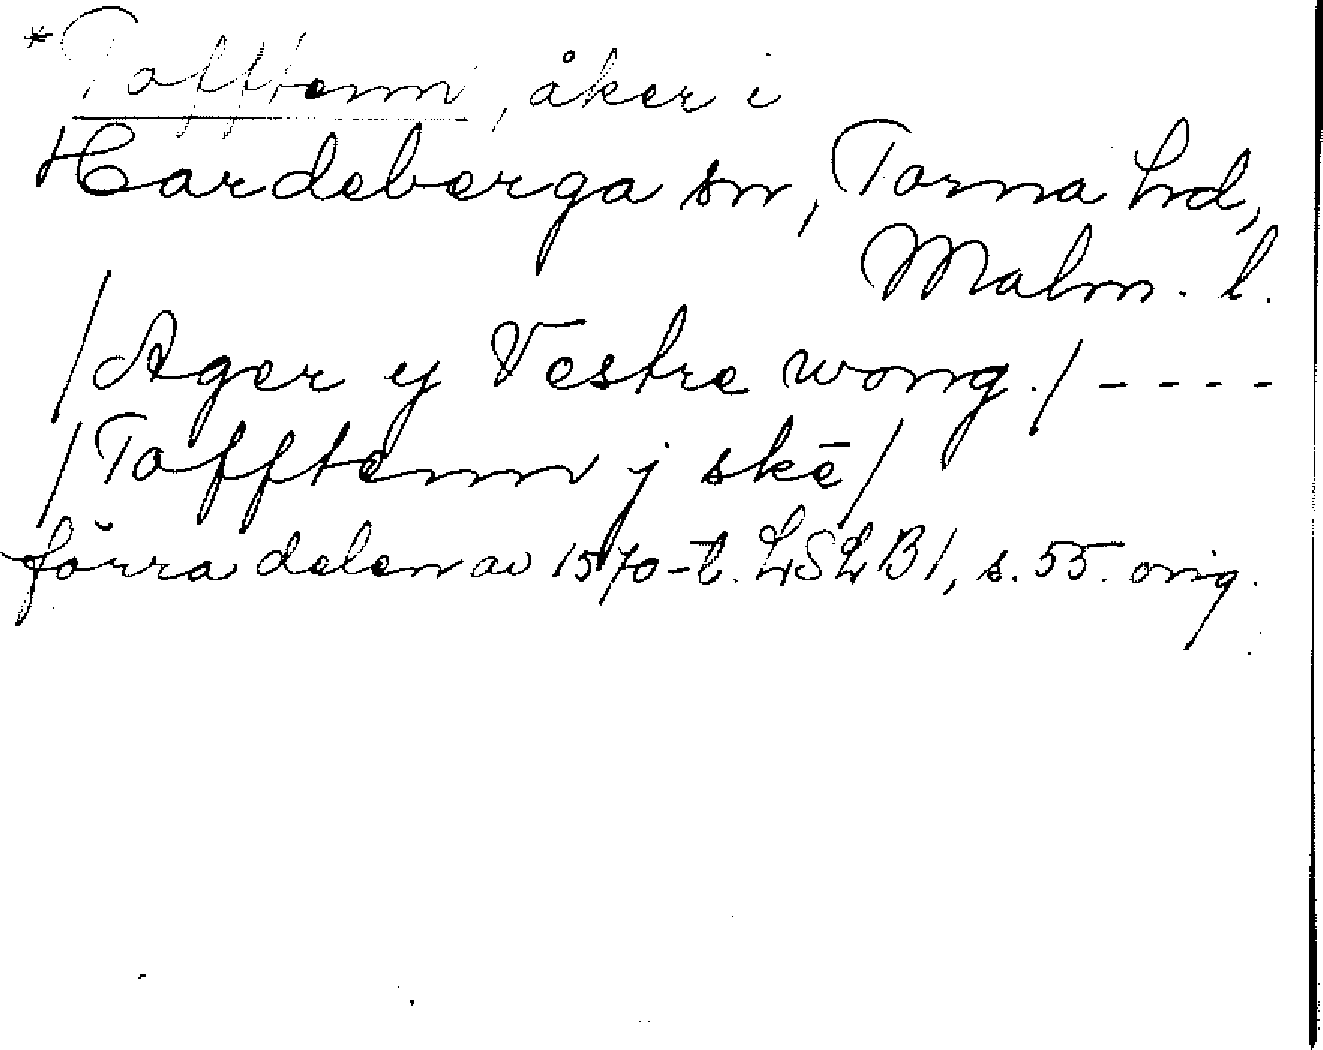 *Tofftenn, åker i
Hardeberga sn, Torna hd,
Malm. l.
/Ager y Vestre wong./ ----
/Tofftenn j skē/
förra delen av 1570-t. LSLB1, s. 55. orig.